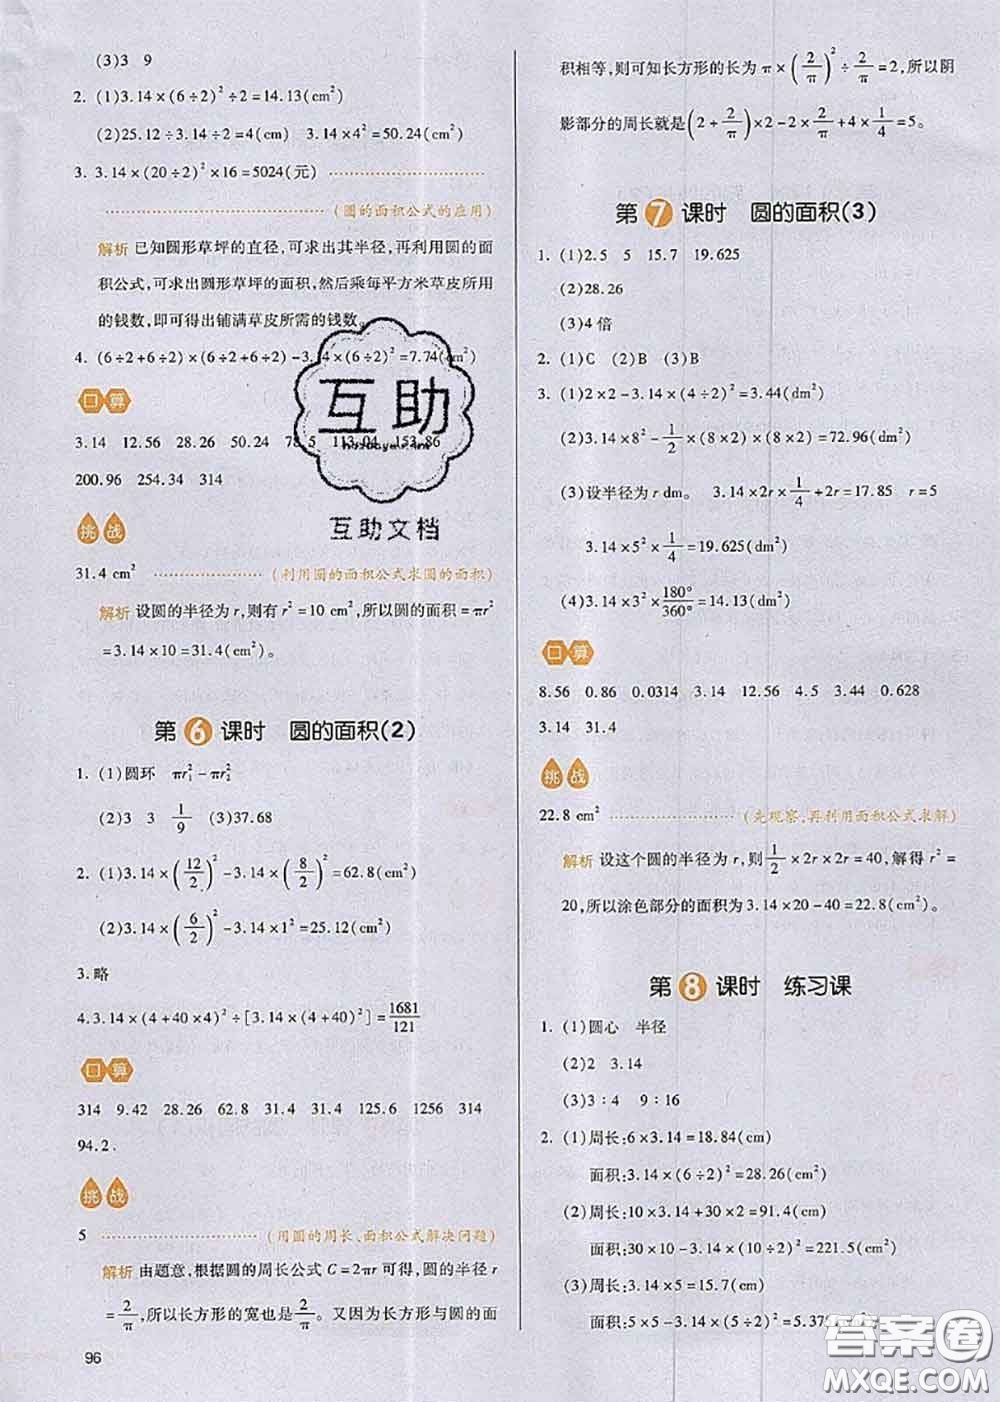 (3)3 9
2. (1)3.14×(6÷2)²÷2=14.13(cm²)
(2)25.12÷3.14÷2=4(cm) 3.14×4²=50.24(cm²)
3. 3.14×(20÷2)²×16=5024(元)
(圆的面积公式的应用)
解析 已知圆形草坪的直径,可求出其半径,再利用圆的面
积公式,可求出圆形草坪的面积,然后乘每平方米草皮所用
的钱数,即可得出铺满草皮所需的钱数。
4. (6÷2+6÷2)×(6÷2+6÷2)-3.14×(6÷2)²=7.74(cm²)
口算
3.14 12.56 28.26 50.24 78.5 113.04 153.86
200.96 254.34 314
挑战
31.4 cm² (利用圆的面积公式求圆的面积)
解析 设圆的半径为r,则有r²=10 cm²,所以圆的面积=πr²
=3.14×10=31.4(cm²)。
第6课时 圆的面积(2)
1. (1)圆环 πr₁²-πr₂²
(2)3 3 1/9 (3)37.68
2. (1)3.14×(12/2)²-3.14×(8/2)²=62.8(cm²)
(2)3.14×(6/2)²-3.14×1²=25.12(cm²)
3.略
4.3.14×(4+40×4)²÷[3.14×(4+40)²]=1681/121
口算
314 9.42 28.26 62.8 31.4 31.4 125.6 1256 314
94.2
挑战
5 (用圆的周长、面积公式解决问题)
解析 由题意,根据圆的周长公式C=2πr可得,圆的半径r
=2/π,所以长方形的宽也是2/π。又因为长方形与圆的面
96
积相等,则可知长方形的长为π×(2/π)²÷2/π=2,所以阴
影部分的周长就是(2+2/π)×2-2×2/π+4×1/4=5。
第7课时 圆的面积(3)
1. (1)2.5 5 15.7 19.625
(2)28.26
(3)4倍
2. (1)C (2)B (3)B
3. (1)2×2-3.14×(4÷2)²=3.44(dm²)
(2)3.14×8²-1/2×(8×2)×(8×2)=72.96(dm²)
(3)设半径为r dm。 3.14×2r×1/4+2r=17.85 r=5
3.14×5²×1/4=19.625(dm²)
(4)3.14×3²×180°/360°=14.13(dm²)
口算
8.56 0.86 0.0314 3.14 12.56 4.5 3.44 0.628
3.14 31.4
挑战
22.8 cm² (先观察,再利用面积公式求解)
解析 设这个圆的半径为r,则1/2×2r×2r=40,解得r²=
20,所以涂色部分的面积为3.14×20-40=22.8(cm²)。
第8课时 练习课
1. (1)圆心 半径
(2)2 3.14
(3)3:4 9:16
2. (1)周长:6×3.14=18.84(cm)
面积:3.14×(6÷2)²=28.26(cm²)
(2)周长:10×3.14+30×2=91.4(cm)
面积:30×10-3.14×(10÷2)²=221.5(cm²)
(3)周长:3.14×5=15.7(cm)
面积:5×5-3.14×(5÷2)²=5.375
互助
互助文档
答案圈
MXQE.COM